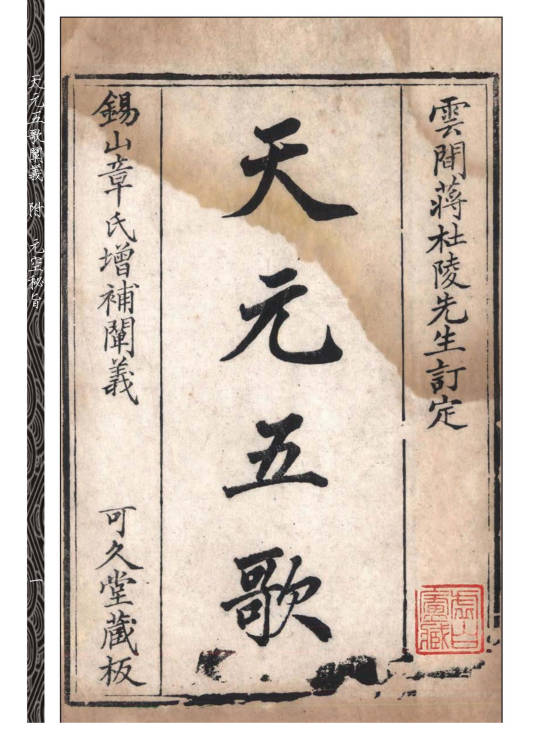 雲間蔣杜陵先生訂定
天元五歌
錫山章氏增補闡義
可久堂藏板
虛白廬藏
天元五歌闡義 附 元空秘旨
一